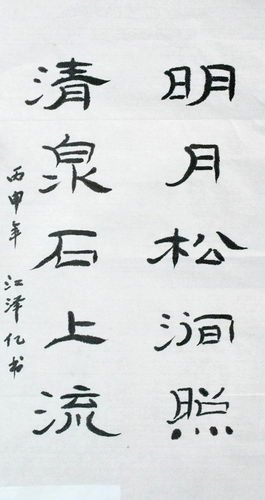 明月松澗照
清泉石上流
丙申年 江泽亿书